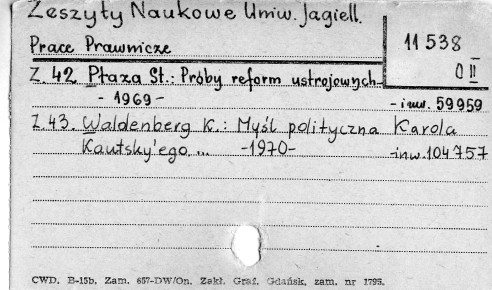 Zeszyty Naukowe Uniw. Jagiell.
Prace Prawnicze
11 538
0 II
Z. 42 Ptaza St.: Próby reform ustrojowych
- 1969 - -inw. 59959
Z. 43. Waldenberg K.: Myśl polityczna Karola
Kautsky'ego... -1970- -inw. 104757
CWD. B-15b. Zam. 657-DW/On. Zakł. Graf. Gdańsk, zam. nr 1795.